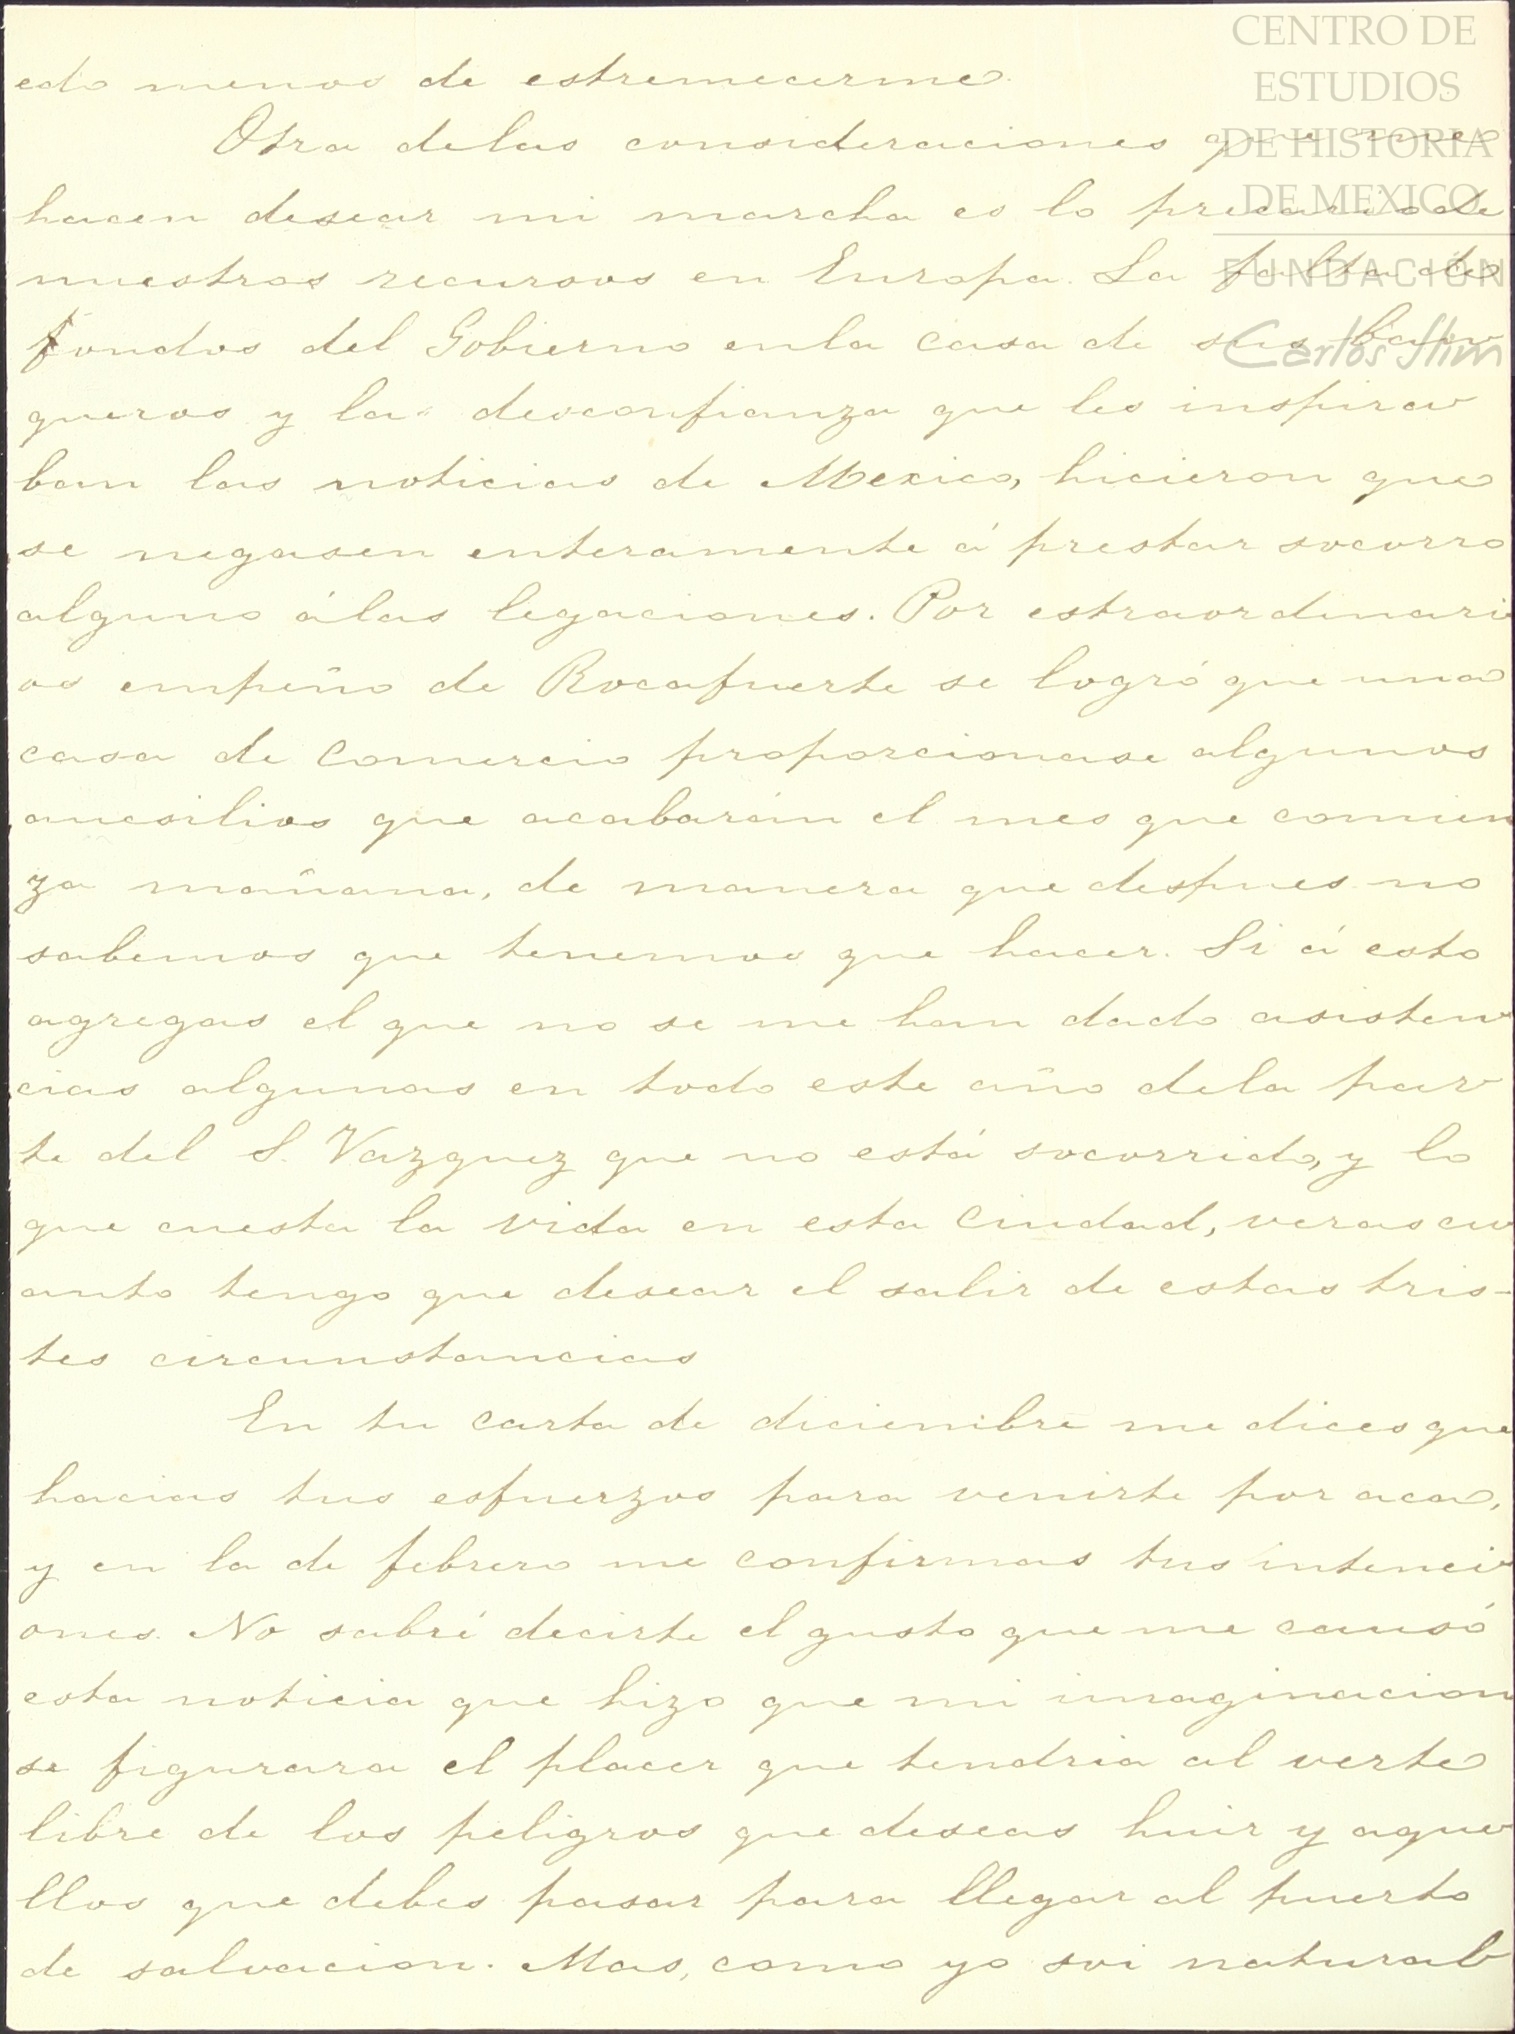 CENTRO DE
ESTUDIOS
DE HISTORIA
DE MEXICO
FUNDACIÓN
Carlos Slim
edo menos de estremecerme.
Otra delas consideraciones que me
hacen desear mi marcha es lo precario de
nuestros recursos en Europa. La falta de
fondos del Gobierno enla casa de sus ban
queros y la desconfianza que les inspira
ban las noticias de Mexico, hicieron que
se negasen enteramente á prestar socorro
alguno álas legaciones. Por estraordinari
os empeño de Rocafuerte se logró que una
casa de Comercio proporcionase algunos
aucsilios que acabarán el mes que comien
za mañana, de manera que despues no
sabemos que tenemos que hacer. Si á esto
agregas el que no se me han dado asisten
cias algunas en todo este año dela par
te del S. Vazquez que no está socorrido, y lo
que cuesta la vida en esta Ciudad, veras cu
anto tengo que desear el salir de estas tris-
tes circunstancias
En tu carta de diciembre me dices que
hacias tus esfuerzos para venirte por aca,
y en la de febrero me confirmas tus intenci
ones. No sabré decirte el gusto que me causó
esta noticia que hizo que mi imaginacion
se figurara el placer que tendria al verte
libre de los peligros que deseas huir y aque
llos que debes pasar para llegar al puerto
de salvacion. Mas, como yo soi natural